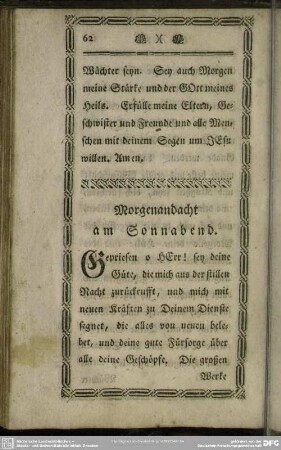 62 X
Wächter seyn. Sey auch Morgen
meine Stärke und der GOtt meines
Heils. Erfülle meine Eltern, Ge-
schwister und Freunde und alle Men-
schen mit deinem Segen um JEsu
willen. Amen.
Morgenandacht
am Sonnabend.
Gepriesen o HErr! sey deine
Güte, die mich aus der stillen
Nacht zurückrufft, und mich mit
neuen Kräften zu Deinem Dienste
segnet, die alles von neuen bele-
bet, und deine gute Fürsorge über
alle deine Geschöpfe. Die großen
Werke
DFG